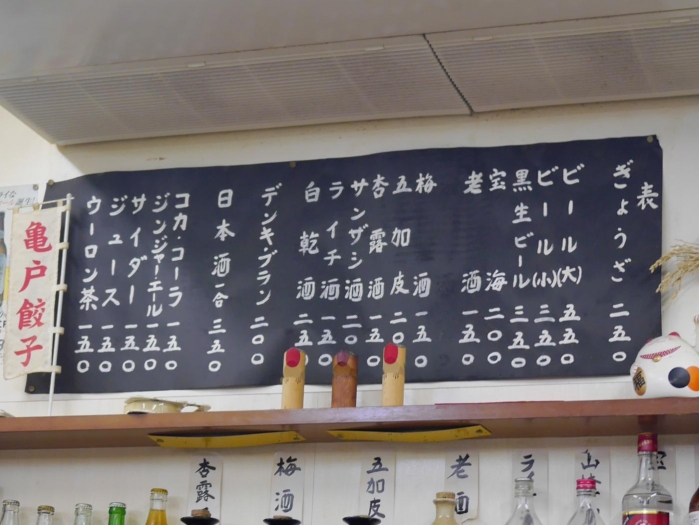 表
ぎょうざ 二五〇
ビール(大) 五五〇
ビール(小) 三五〇
黒生ビール 三五〇
宝海 二〇〇
老酒 一五〇
梅酒 一五〇
五加皮 二〇〇
杏露酒 一五〇
サンザシ酒 二〇〇
ライチ酒 一五〇
白乾酒 二五〇
デンキブラン 二〇〇
日本酒 一合 三五〇
コカ・コーラ 一五〇
ジンジャーエール 一五〇
サイダー 一五〇
ジュース 一五〇
ウーロン茶 一五〇
亀戸餃子
杏露
梅酒
五加皮
老酒